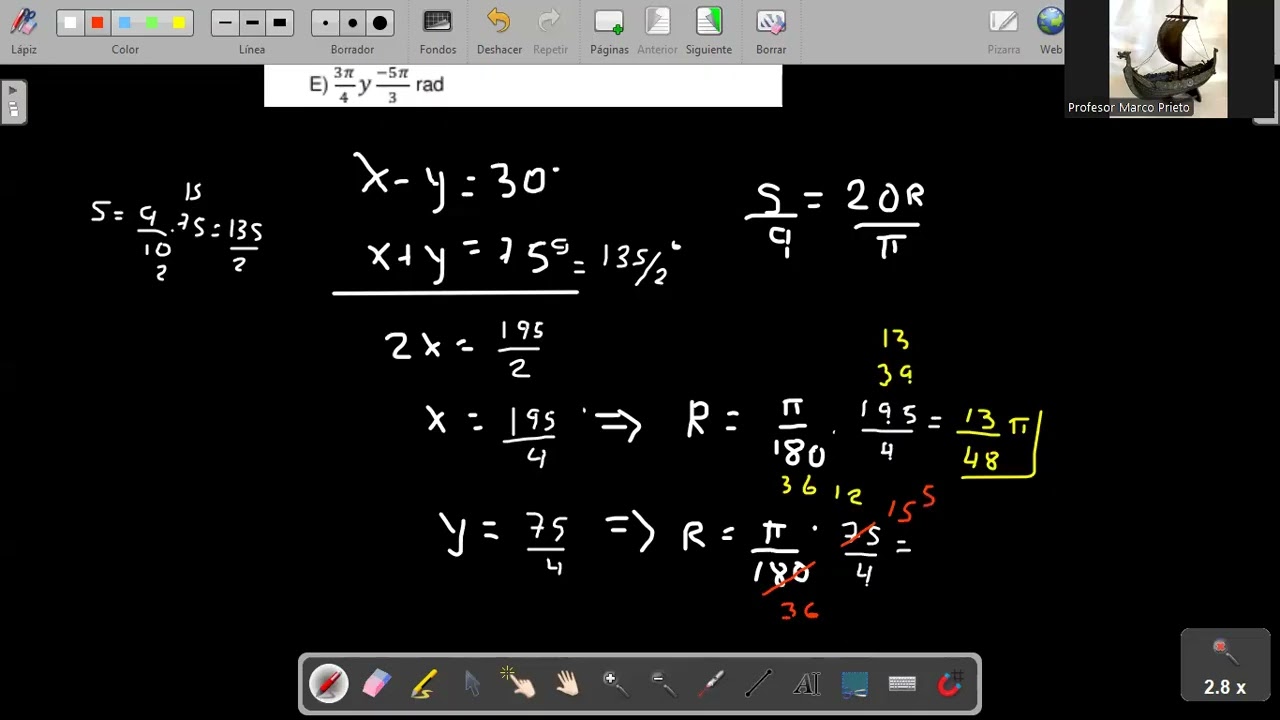 Lápiz Color Línea Borrador Fondos Deshacer Repetir Páginas Anterior Siguiente Borrar Pizarra Web
Profesor Marco Prieto
E) 3π/4 y −5π/3 rad
x - y = 30°
x + y = 75ᵍ = 135/2°
S = 9/10 · 75 = 135/2
15
2
S/9 = 20R/π
2x = 195/2
x = 195/4 => R = π/180 · 195/4 = 13/48 π
13
39
36 12
y = 75/4 => R = π/180 · 75/4 =
15 5
36
AI
2.8 x